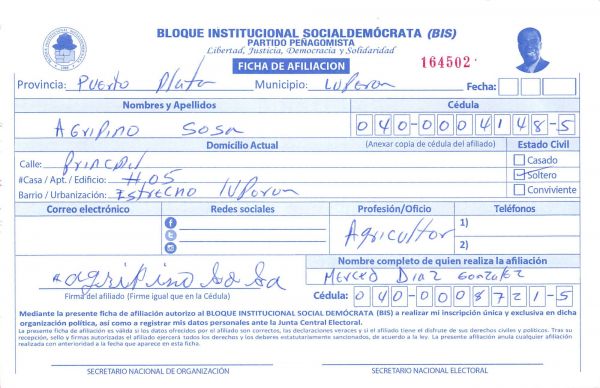 BLOQUE INSTITUCIONAL SOCIALDEMÓCRATA (BIS)
PARTIDO PEÑAGOMISTA
Libertad, Justicia, Democracia y Solidaridad
FICHA DE AFILIACION
164502
Provincia: Puerto Plata Municipio: Luperon Fecha:
Nombres y Apellidos Cédula
Agripino Sosa 040-0004148-5
Domicilio Actual (Anexar copia de cédula del afiliado) Estado Civil
Calle: Principal Casado
#Casa / Apt. / Edificio: #05 Soltero
Barrio / Urbanización: Estrecho Luperon Conviviente
Correo electrónico Redes sociales Profesión/Oficio Teléfonos
Agricultor 1)
2)
Nombre completo de quien realiza la afiliación
agripino Sosa Merced Diaz Gonzalez
Firma del afiliado (Firme igual que en la Cédula) Cédula: 040-0008721-5
Mediante la presente ficha de afiliación autorizo al BLOQUE INSTITUCIONAL SOCIAL DEMÓCRATA (BIS) a realizar mi inscripción única y exclusiva en dicha
organización política, así como a registrar mis datos personales ante la Junta Central Electoral.
La presente ficha de afiliación es válida si los datos ofrecidos por el afiliado son correctos, las declaraciones veraces y si el afiliado tiene el disfrute de sus derechos civiles y políticos. Tras su
recepción, sello y firmas autorizadas el afiliado ejercerá todos los derechos y los deberes estatutariamente sancionados, de acuerdo a la ley. La presente afiliación anula cualquier afiliación
realizada con anterioridad a la fecha que aparece en esta ficha.
SECRETARIO NACIONAL DE ORGANIZACIÓN SECRETARIO NACIONAL ELECTORAL